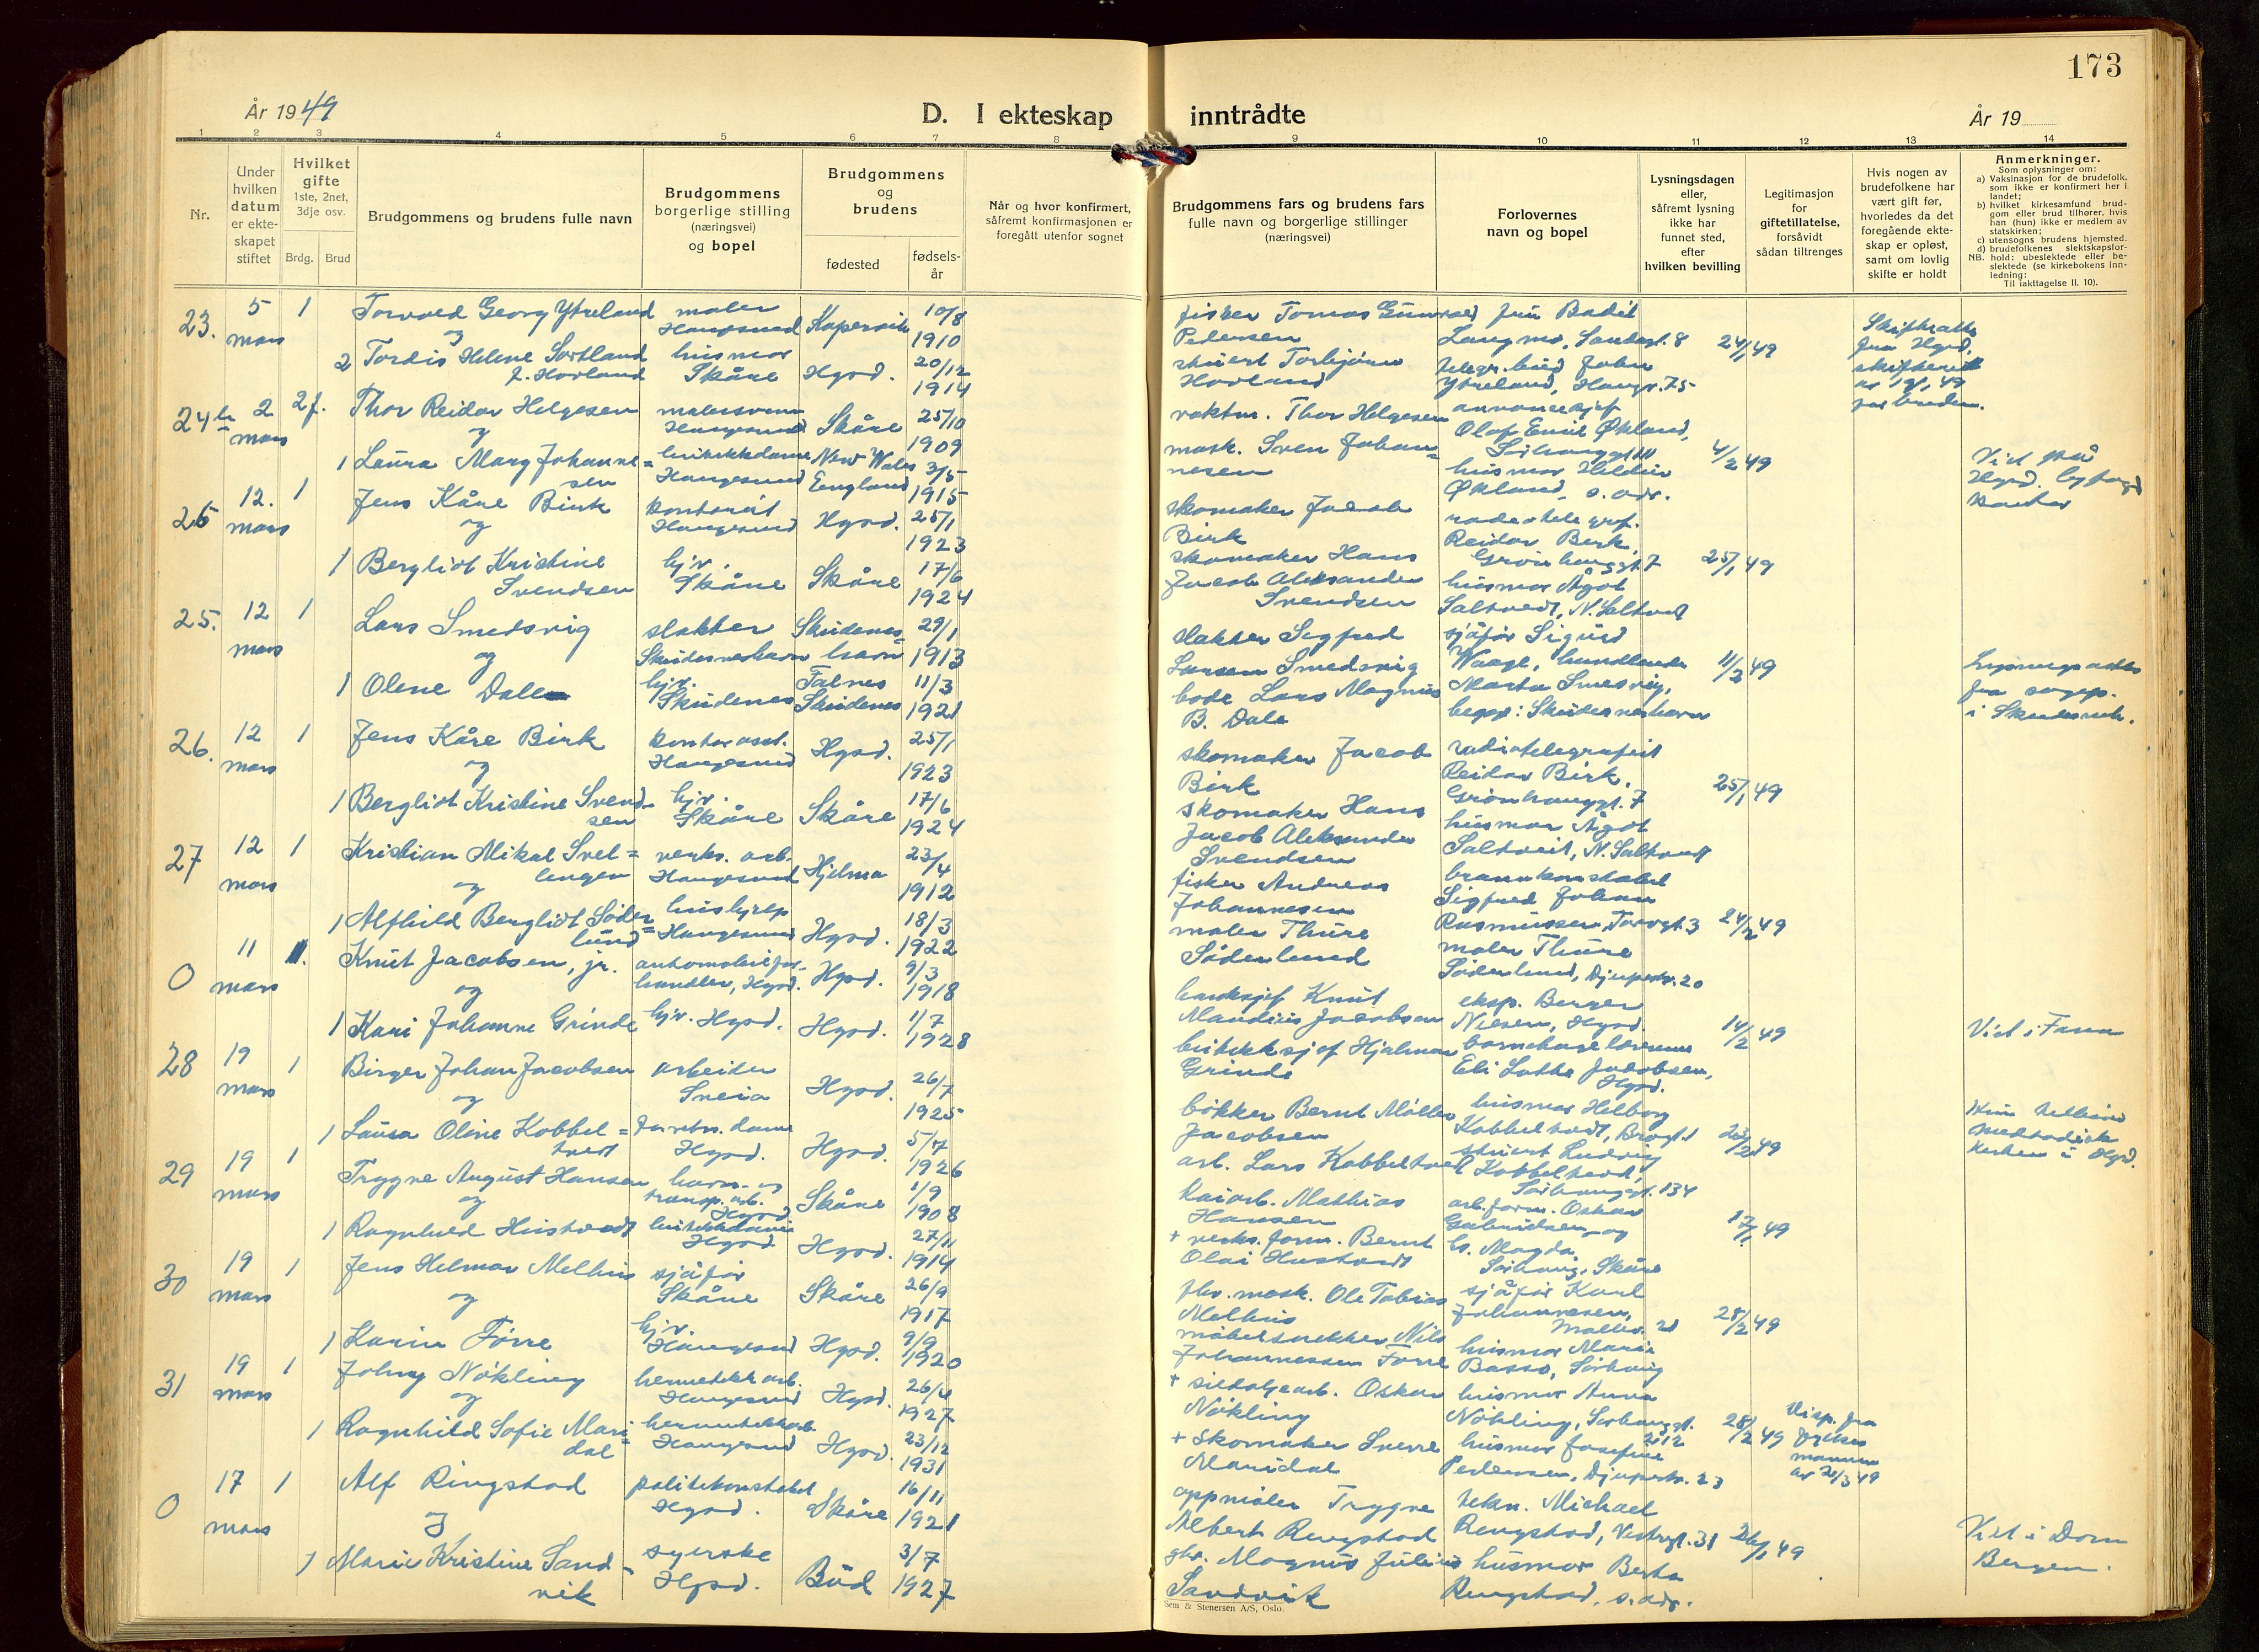 173
År 1949
D. I ekteskap inntrådte
År 19
1 2 3 4 5 6 7 8 9 10 11 12 13 14
Nr.
Under
hvilken
datum
er ekte-
skapet
stiftet
Hvilket
gifte
1ste, 2net,
3dje osv.
Brdg. Brud
Brudgommens og brudens fulle navn
Brudgommens
borgerlige stilling
(næringsvei)
og bopel
Brudgommens
og
brudens
fødested
fødsels-
år
Når og hvor konfirmert,
såfremt konfirmasjonen er
foregått utenfor sognet
Brudgommens fars og brudens fars
fulle navn og borgerlige stillinger
(næringsvei)
Forlovernes
navn og bopel
Lysningsdagen
eller,
såfremt lysning
ikke har
funnet sted,
efter
hvilken bevilling
Legitimasjon
for
giftetillatelse,
forsåvidt
sådan tiltrenges
Hvis nogen av
brudefolkene har
vært gift før,
hvorledes da det
foregående ekte-
skap er opløst,
samt om lovlig
skifte er holdt
Anmerkninger.
Som oplysninger om:
a) Vaksinasjon for de brudefolk,
som ikke er konfirmert her i
landet;
b) hvilket kirkesamfund brud-
gom eller brud tilhører, hvis
han (hun) ikke er medlem av
statskirken;
c) utensogns brudens hjemsted.
d) brudefolkenes slektskapsfor-
NB. hold: ubeslektede eller be-
slektede (se kirkebokens inn-
ledning:
Til iakttagelse II. 10).
23. 5 mars 1
Torvald Georg Ytreland
og
2 Tordis Helene Sortland
f. Hovland
maler
Haugesund
husmor
Skåre
Kopervik
10/8
1910
Hgsd.
20/12
1914
fisker Tomas Gunvald
Pedersen
stuert Torbjørn
Hovland
fru Bodil
Langmo, Sandagt. 8
telegr.bud John
Ytreland, Haugv. 75
24/1 49
Skifteattes
fra Hgsd.
skifterett
av 19/1 49
for bruden.
24 b 2 mars 2 f.
Thor Reidar Helgesen
og
1 Laura Mary Johanne=
sen
malersvenn
Haugesund
butikkdame
Haugesund
Skåre
25/10
1909
New Wales
England
3/5
1915
vaktm. Thor Helgesen
mask. Sven Johan=
nesen
annonsesjef
Olaf Emil Økland,
husmor Heldin
Økland, s. adr.
4/2 49
Viet på
Hgsd. byfogd
kontor
25 12. mars 1
Jens Kåre Birk
og
1 Bergliot Kristine
Svendsen
kontorist
Haugesund
hjv.
Skåre
Hgsd.
25/1
1923
Skåre
17/6
1924
skomaker Jacob
Birk
skomaker Hans
Jacob Aleksander
Svendsen
radiotelegrf.
Reidar Birk,
Grønhauggt. 7
husmor Ågot
Saltvedt, N. Saltvedt
25/1 49
25. 12 mars 1
Lars Smedsvig
og
1 Olene Dale
slakter
Skudeneshavn
hjv.
Skudenes
Skudenes=
havn
29/1
1913
Falnes
Skudenes
11/3
1921
slakter Sigfred
Larsen Smedsvig
bode Lars Magnus
B. Dale
sjåfør Sigurd
Waage, handlende
Marta Smedsvig,
begge: Skudeneshavn
11/2 49
Lysningsattes
fra sogep.
i Skudesneh.
26. 12 mars 1
Jens Kåre Birk
og
1 Bergliot Kristine Svend-
sen
kontorasst.
Haugesund
hjv.
Skåre
Hgsd.
25/1
1923
Skåre
17/6
1924
skomaker Jacob
Birk
skomaker Hans
Jacob Aleksander
Svendsen
radiotelegrafist
Reidar Birk,
Grønhauggt. 7
husmor Ågot
Saltveit, N. Saltvedt
25/1 49
27 12 mars 1
Kristian Mikal Svel=
lingen
og
1 Alfhild Bergliot Søder=
lund
verks. arb.
Haugesund
hushjelp
Haugesund
Hjelma
23/4
1912
Hgsd.
18/3
1922
fisker Andreas
Johannesen
maler Thure
Søderlund
brannkonstabel
Sigfred Johan
Rasmussen, Torvgt. 3
maler Thure
Søderlund, Djupaskr. 20
24/2 49
0 11 mars 1.
Knut Jacobsen, jr.
og
1 Kari Johanne Grinde
automobilfor-
handler, Hgsd.
hjv. Hgsd.
Hgsd.
9/3
1918
Hgsd.
1/7
1928
banksjef Knut
Mandius Jacobsen
butikksjef Hjalmar
Grinde
eksp. Berger
Nilsen, Hgsd.
barnehagelærerinne
Eli Lothe Jacobsen,
Hgsd.
14/2 49
Viet i Fana
28 19 mars 1
Birger Johan Jacobsen
og
1 Laura Oline Kobbel=
tvedt
arbeider
Sveio
forretn. dame
Hgsd.
Hgsd.
26/7
1925
Hgsd.
5/7
1926
bøkker Bernt Møller
Jacobsen
arb. Lars Kobbeltvedt
husmor Helborg
Kobbeltvedt, Brogt.
stuert Ludvig
Kobbeltvedt,
Sørhauggt. 134
23/2 49
Hun tilhører
metodist
kirken i Hgsd.
29 19 mars 1
Trygve August Hansen
og
1 Ragnhild Hustvedt
havn- og
transp. arb.
Hgsd.
butikkdame
Hgsd.
Skåre
1/9
1908
Hgsd.
27/11
1914
kaiarb. Mathias
Hansen
+ verks. form. Bernt
Olai Hustvedt
arb.form. Oskar
Gabrielsen og
h. Magda
Sørhaug, Skåre
17/1 49
30 19 mars 1
Jens Helmar Melhus
og
1 Karin Førre
sjåfør
Skåre
hjv.
Haugesund
Skåre
26/9
1917
Hgsd.
9/9
1920
fhv. mask. Ole Tobias
Melhus
møbelsnekker Nils
Johannessen Førre
sjåfør Karl
Johannesen,
husmor Marie
Basso, Sørhaug
28/2 49
31 19 mars 1
Johny Nökling
og
1 Ragnhild Sofie Mari=
dal
hermetikkarb.
Haugesund
hermetikkarb.
Haugesund
Hgsd.
26/4
1927
Hgsd.
23/12
1931
+ sildoljearb. Oskar
Nökling
+ Skomaker Sverre
Maridal
husmor Anna
Nökling, Sørhauggt.
212
husmor Josefine
Pedersen, Djupaskr. 23
28/2 49
Disp. fra
fylkes
mannen
av 2/3 49
0 17 mars 1
Alf Ringstad
og
1 Marie Kristine Sand-
vik
politikonstabel
Hgsd.
syerske
Hgsd.
Skåre
16/11
1921
Bud
3/7
1927
oppmåler Trygve
Albert Ringstad
gbr. Magnus Julius
Sandvik
tekn. Michael
Ringstad, Vestregt. 31
husmor Berta
Ringstad, s. adr.
26/1 49
Viet i Dom
Bergen.
Sem & Stenersen A/S, Oslo.